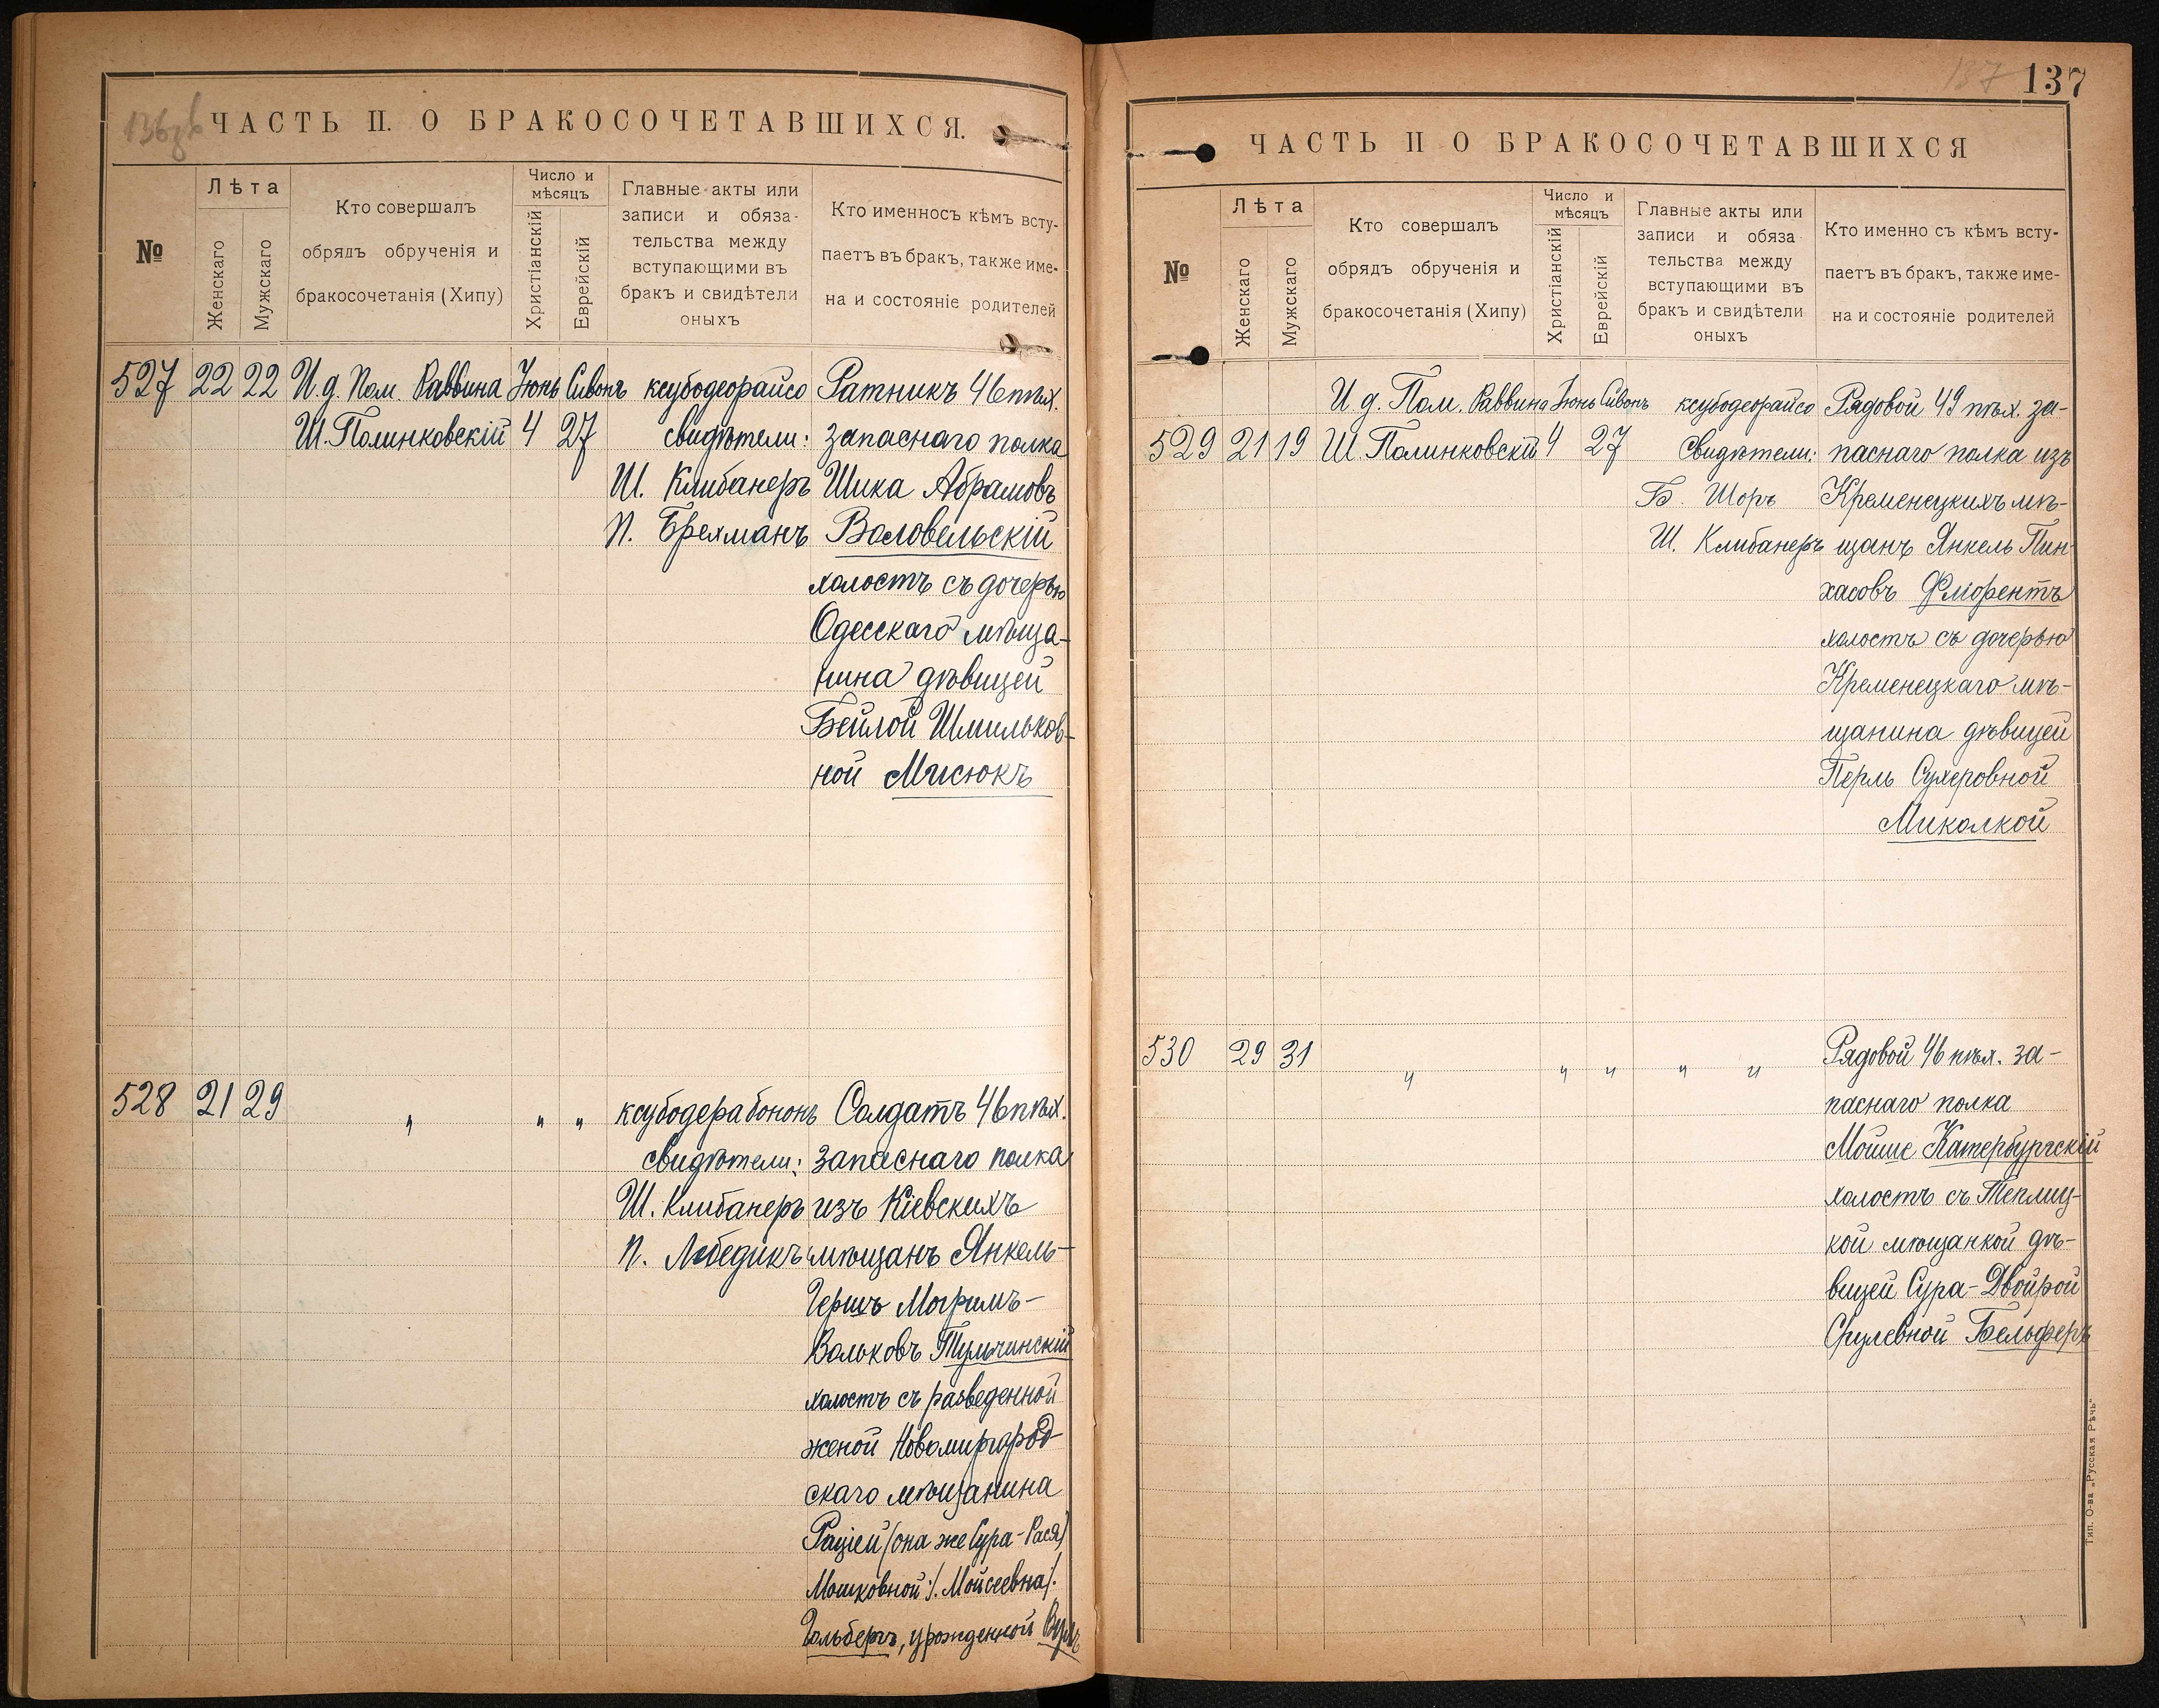 136зв
ЧАСТЬ II. О БРАКОСОЧЕТАВШИХСЯ.
№
Лѣта
Женскаго
Мужскаго
Кто совершалъ
обрядъ обрученія и
бракосочетанія (Хипу)
Число и
мѣсяцъ
Христіанскій
Еврейскій
Главные акты или
записи и обяза-
тельства между
вступающими въ
бракъ и свидѣтели
оныхъ
Кто именносъ кѣмъ всту-
паетъ въ бракъ, также име-
на и состояніе родителей
527 22 22 И.д. Пом. Раввина Іюнь Сивонъ ксубодеорайсо Ратникъ 46 пѣх.
Ш. Полинковскій 4 27 свидѣтели: запаснаго полка
Ш. Клибанеръ Шика Абрамовъ
П. Брехманъ Воловельскій
холостъ съ дочерью
Одесскаго мѣща-
нина дѣвицей
Бейлой Шмильков-
ной Мисюкъ
528 21 29 " " " ксубодерабононъ Солдатъ 46 пѣх.
свидѣтели: запаснаго полка
Ш. Клибанеръ изъ Кіевскихъ
П. Лебедикъ мѣщанъ Янкель-
Гершъ Могримъ-
Вольковъ Тульчинскій
холостъ съ разведенной
женой Новомиргород-
скаго мѣщанина
Рацiей (она же Сура-Рася)
Мошковной :/. Мойсеевна/.
Гольбергъ, урожденной
137
137
ЧАСТЬ II О БРАКОСОЧЕТАВШИХСЯ
№
Лѣта
Женскаго
Мужскаго
Кто совершалъ
обрядъ обрученія и
бракосочетанія (Хипу)
Число и
мѣсяцъ
Христіанскій
Еврейскій
Главные акты или
записи и обяза
тельства между
вступающими въ
бракъ и свидѣтели
оныхъ
Кто именно съ кѣмъ всту-
паетъ въ бракъ, также име-
на и состояніе родителей
И д. Пом. Раввина Іюнь Сивонъ ксубодеорайсо Рядовой 49 пѣх. за-
529 21 19 Ш. Полинковскій 4 27 Свидѣтели: паснаго полка изъ
Б. Шоръ Кременецкихъ мѣ-
Ш. Клибанеръ щанъ Янкель Пин-
хасовъ Флюрентъ
холостъ съ дочерью
Кременецкаго мѣ-
щанина дѣвицей
Перль Сухеровной
Миколкой
530 29 31 " " " " " Рядовой 46 пѣх. за-
паснаго полка
Мойше Катербургскій
холостъ съ Теплиц-
кой мѣщанкой дѣ-
вицей Сура-Двойрой
Срулевной Бельферъ
Тип. О-ва „Русская Рѣчь“